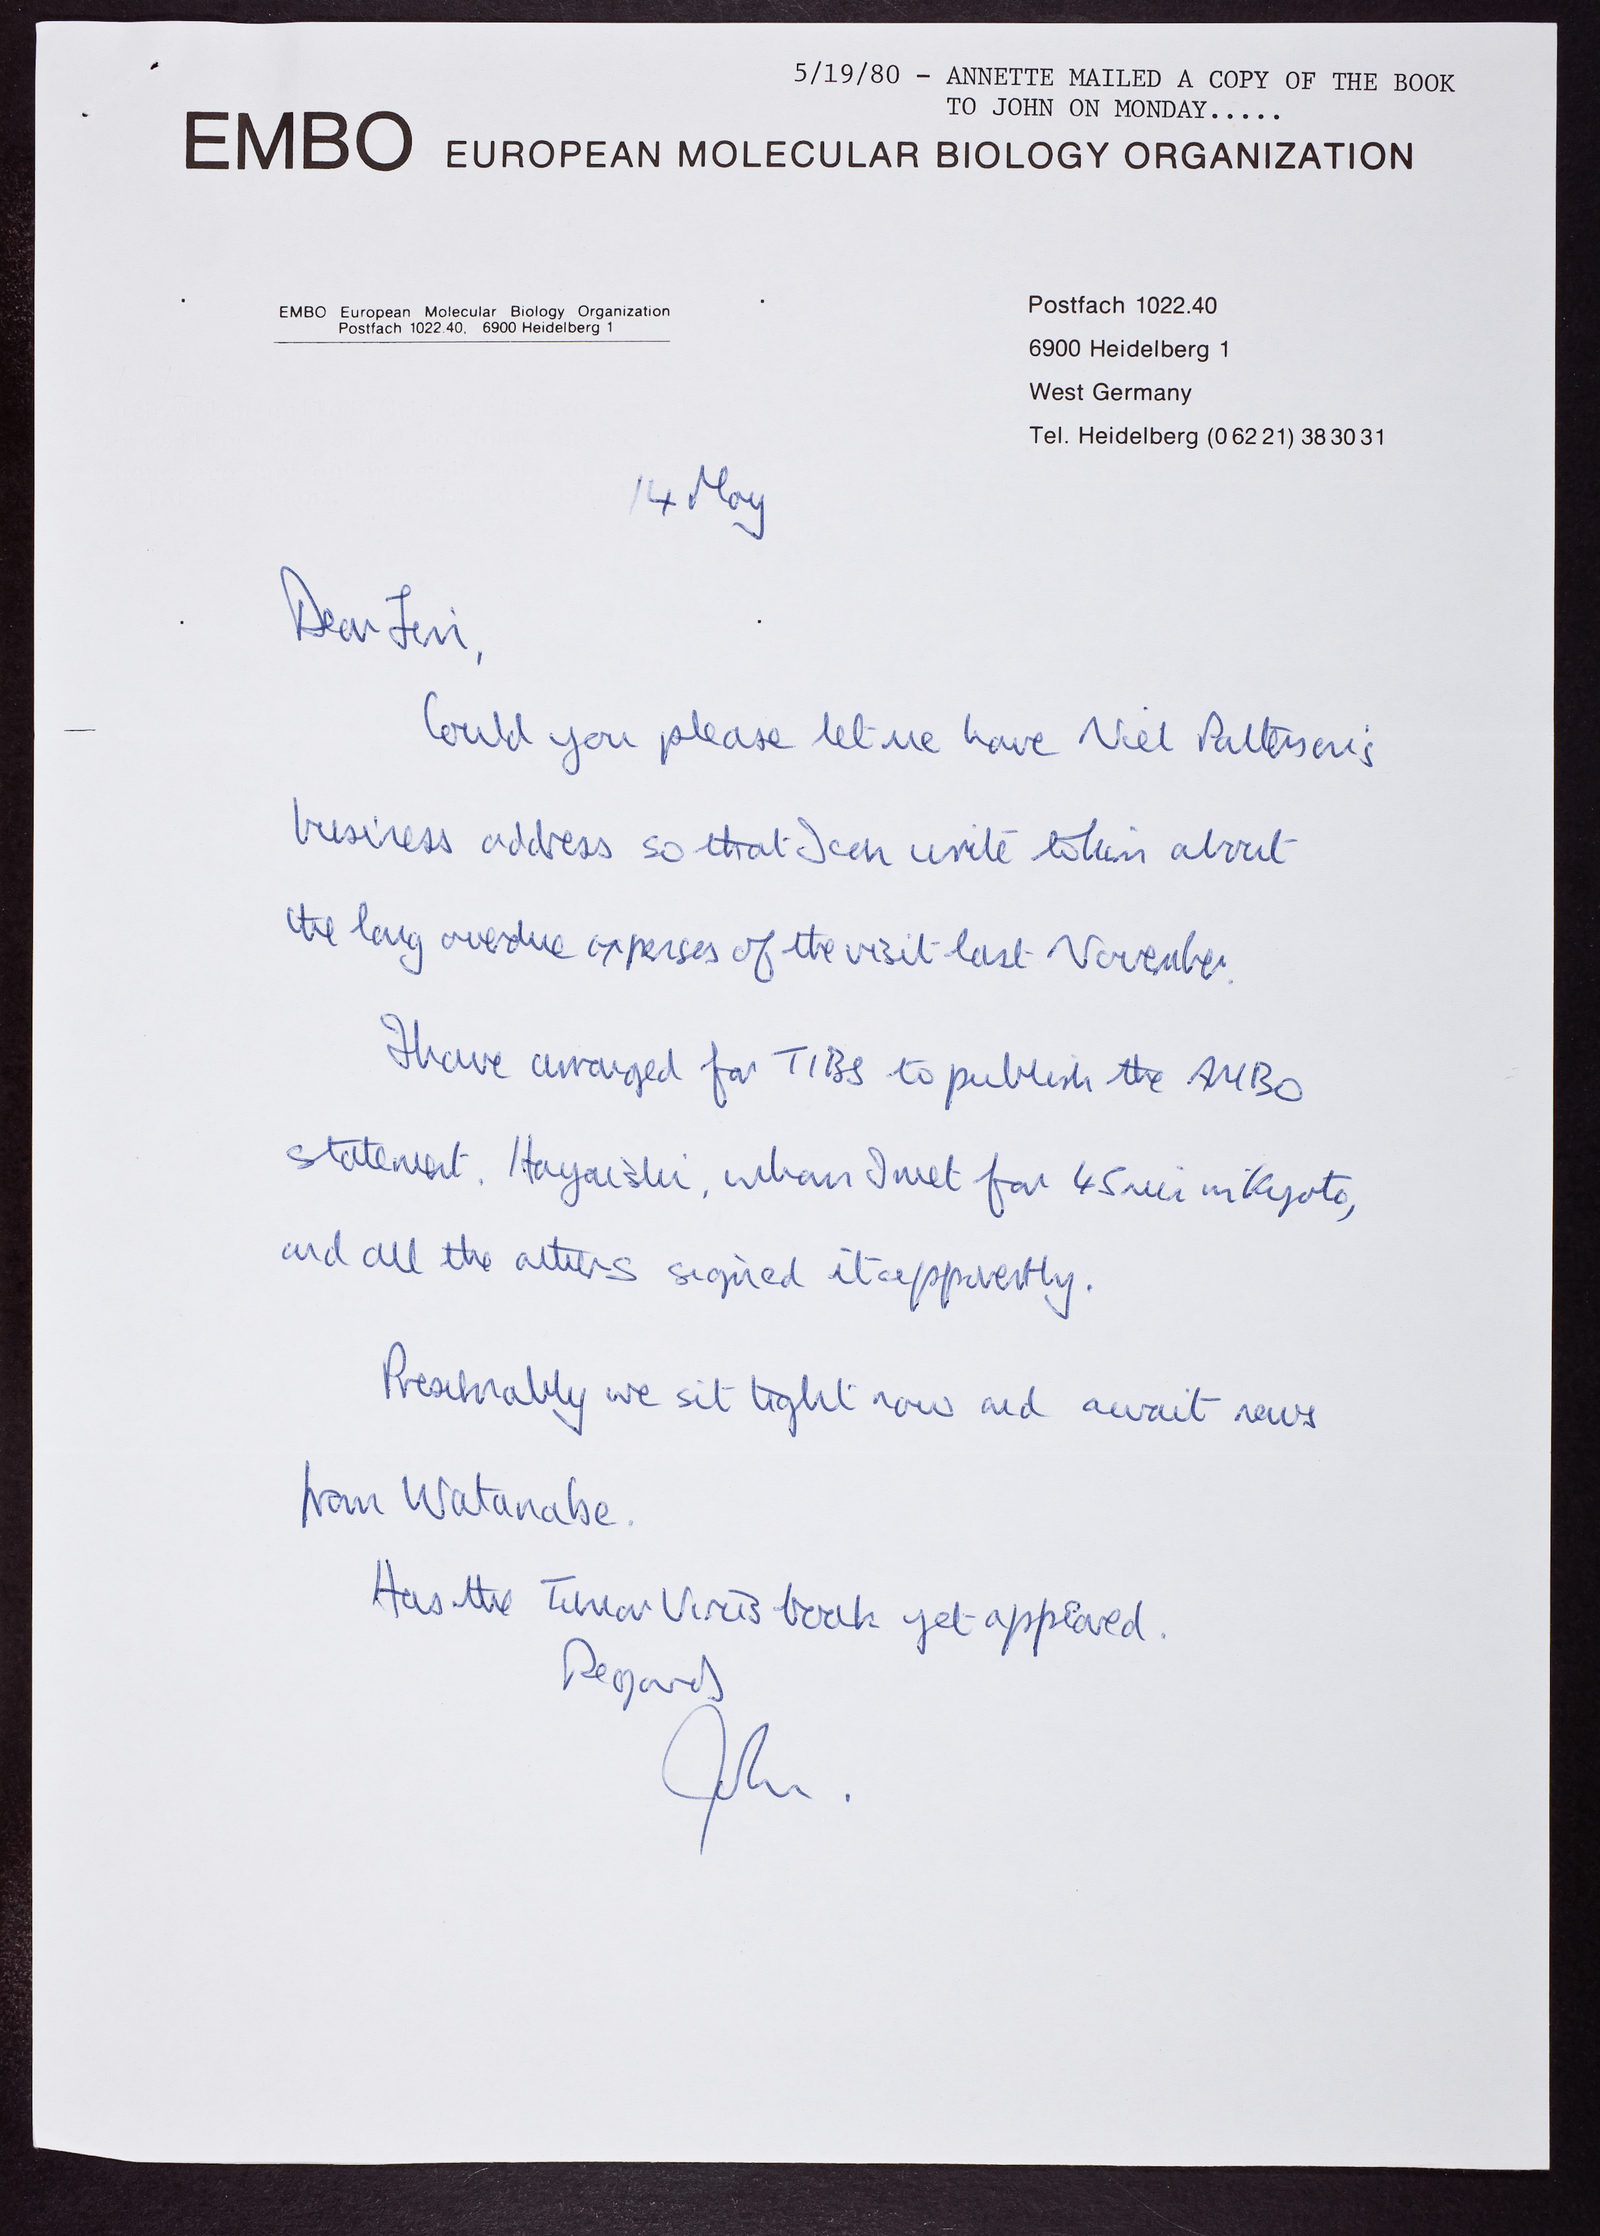 5/19/80 - ANNETTE MAILED A COPY OF THE BOOK
TO JOHN ON MONDAY.....
EMBO EUROPEAN MOLECULAR BIOLOGY ORGANIZATION
EMBO European Molecular Biology Organization
Postfach 1022.40, 6900 Heidelberg 1
Postfach 1022.40
6900 Heidelberg 1
West Germany
Tel. Heidelberg (0 62 21) 38 30 31
14 May
Dear
Could you please let me have Niel Patterson's
business address so that I can write to him about
the long overdue expenses of the visit last November.
I have arranged for TIBS to publish the AMBO
statement. Hayaishi, whom I met for 45 min in Kyoto,
and all the others signed it apparently.
Presumably we sit tight now and await news
from Watanabe.
Has the Tumor Virus book yet appeared.
Regards
John.